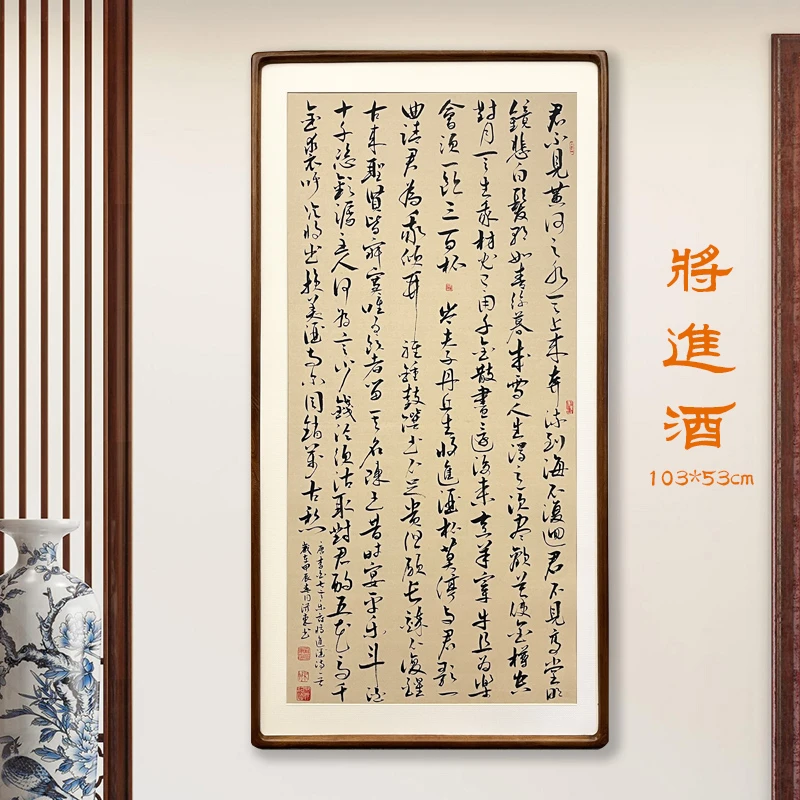 君不見黄河之水天上來奔流到海不復迴君不見高堂明
鏡悲白髮朝如青絲暮成雪人生得意須盡歡莫使金樽空
對月天生我材必有用千金散盡還復來烹羊宰牛且為樂
會須一飲三百杯 岑夫子丹丘生將進酒杯莫停與君歌一
曲請君為我傾耳聽鍾鼓饌玉不足貴但願長醉不復醒
古來聖賢皆寂寞唯有飲者留其名陳王昔時宴平樂斗酒
十千恣歡謔主人何為言少錢徑須沽取對君酌五花馬千
金裘呼兒將出換美酒與爾同銷萬古愁
唐李白七言樂府將進酒詩一首
歲在甲辰春月東書
將進酒
103*53cm